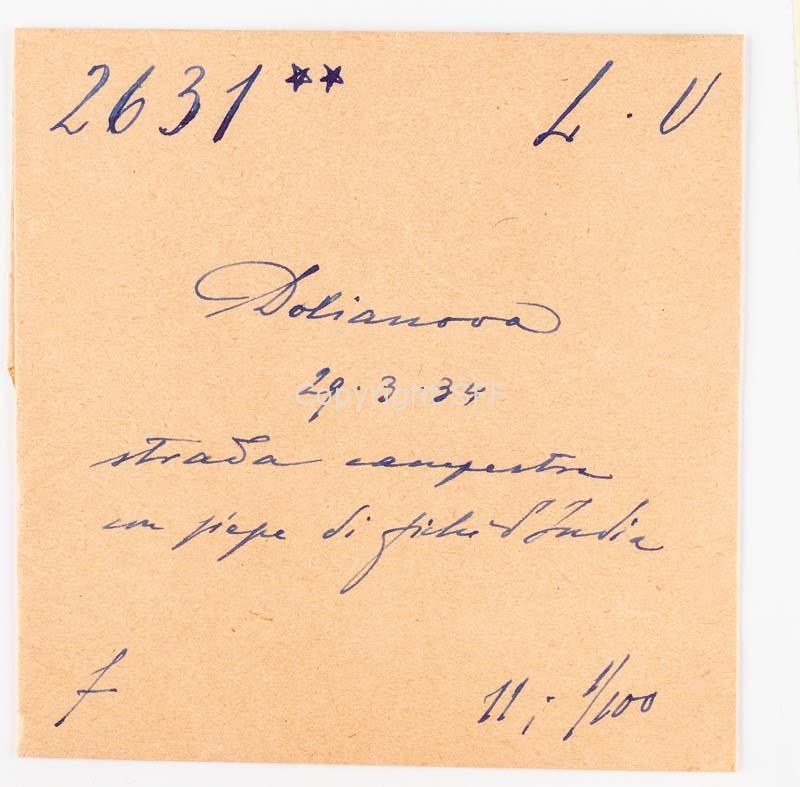 2631 ** L. V
Dolianova
29.3.34
Copyright SFF
strada campestre
con siepe di fichi d'India
f 11; 1/100